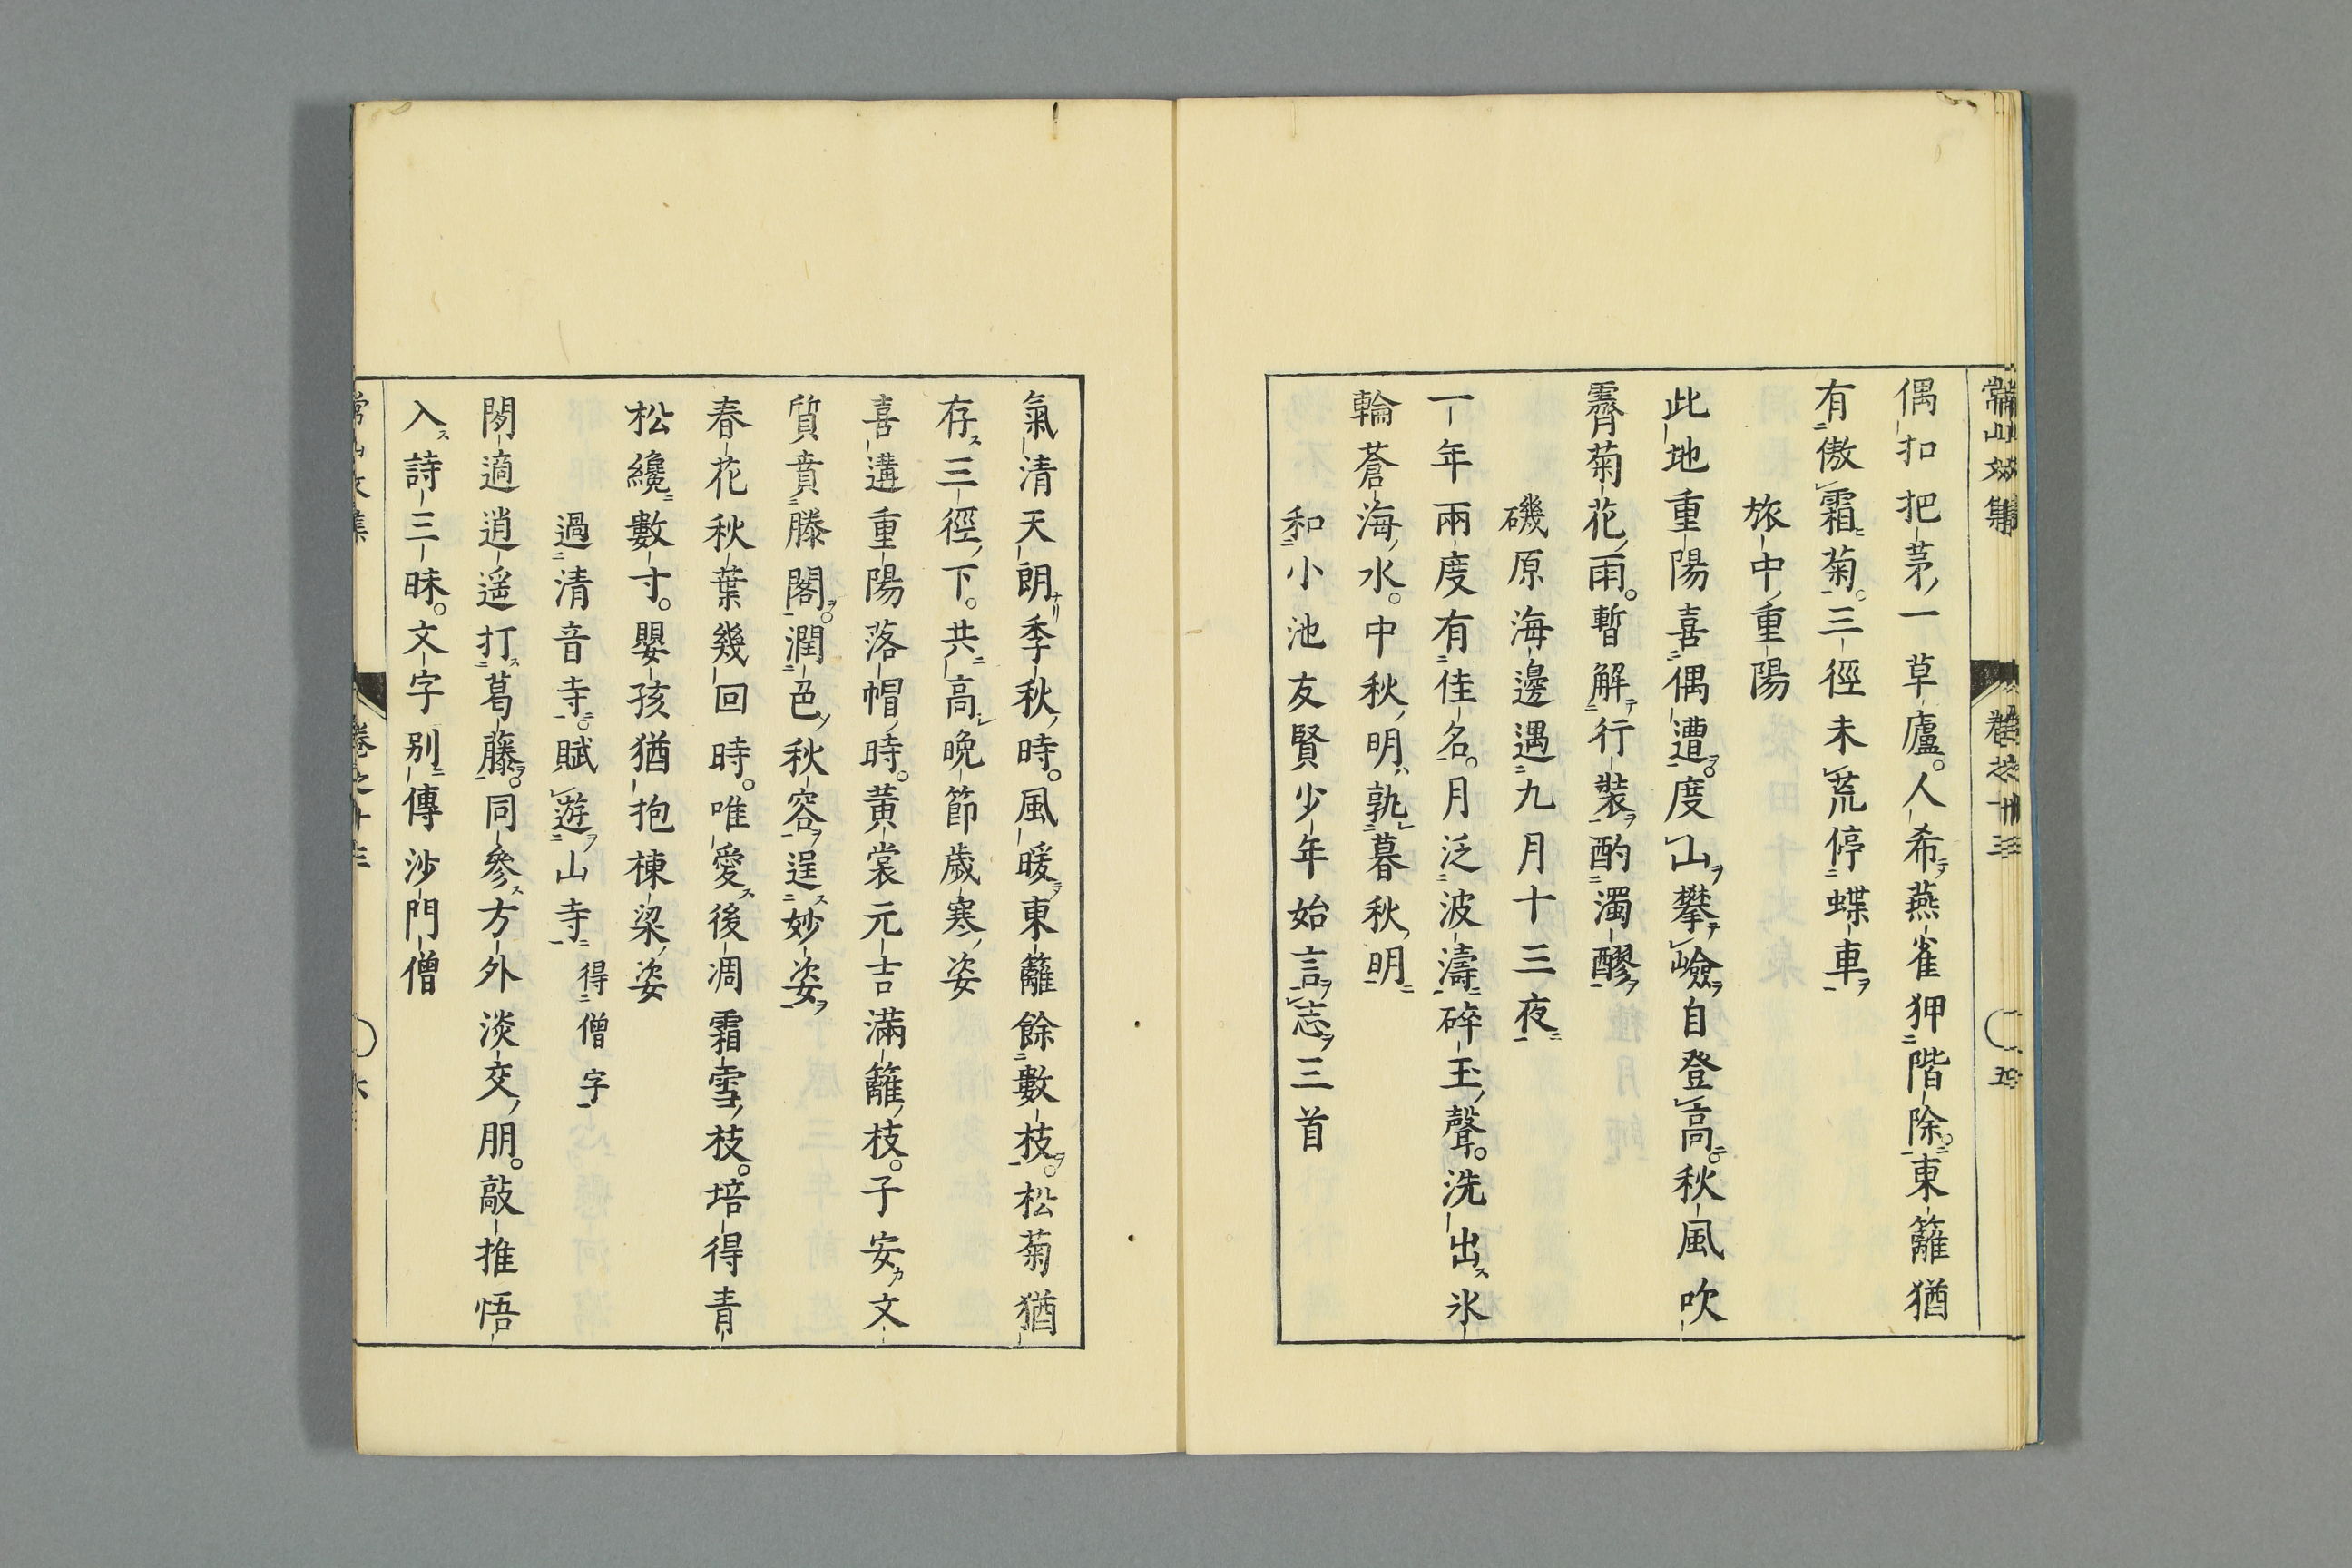 常山文集 卷之十三
偶扣把茅一草廬人希燕雀狎階除東籬猶
有傲霜菊三徑未荒停蝶車
旅中重陽
此地重陽喜偶遭度山攀嶮自登高秋風吹
霽菊花雨暫解行裝酌濁醪
磯原海邊遇九月十三夜
一年兩度有佳名月泛波濤碎玉聲洗出氷
輪蒼海水中秋明孰暮秋明
和小池友賢少年始言志三首
氣清天朗季秋時風暖東籬餘數枝松菊猶
存三徑下共高晩節歲寒姿
喜遘重陽落帽時黃裳元吉滿籬枝子安文
質賁滕閣潤色秋容逞妙姿
春花秋葉幾回時唯愛後凋霜雪枝培得青
松纔數寸嬰孩猶抱棟梁姿
過清音寺賦遊山寺 得僧字
閑適逍遙打葛藤同參方外淡交朋敲推悟
入詩三昧文字別傳沙門僧
常山文集 卷之十三 六